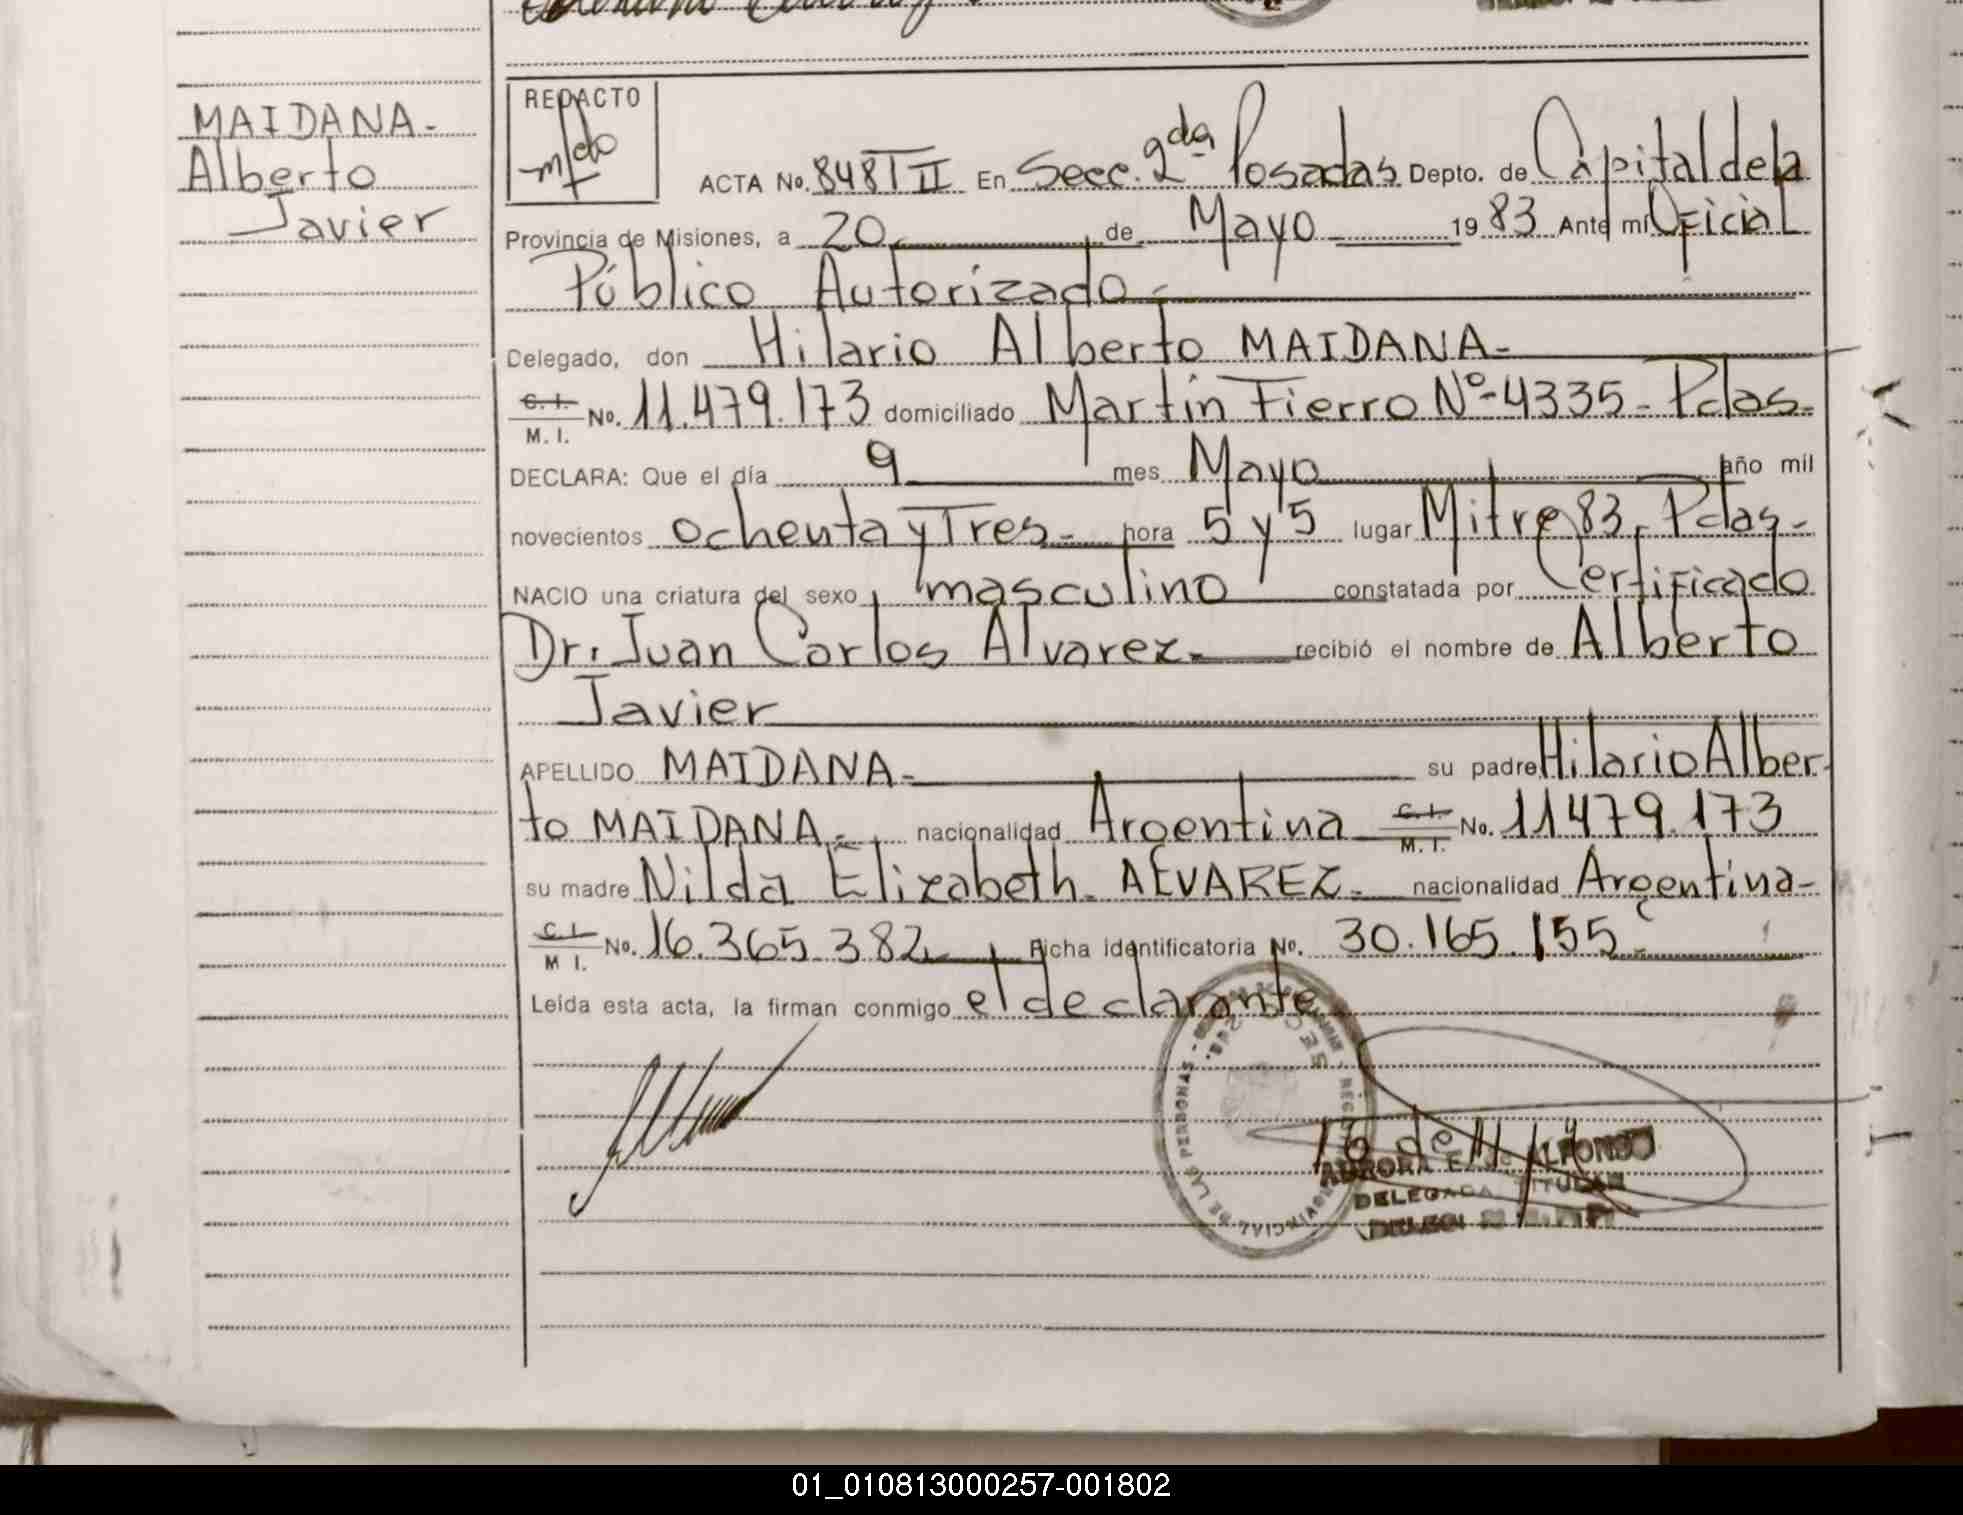 MAIDANA-
Alberto
Javier
REDACTO
ACTA No. 848 T II En Secc. 2da Posadas Depto. de Capital de la
Provincia de Misiones, a 20 de Mayo 1983 Ante mí Oficial
Público Autorizado-
Delegado, don Hilario Alberto MAIDANA-
C. I.
M. I. No. 11.479.173 domiciliado Martín Fierro Nº-4335-Pdas-
DECLARA: Que el día 9 mes Mayo año mil
novecientos ochenta y Tres- hora 5 y 5 lugar Mitre 83, Pdas-
NACIO una criatura del sexo masculino constatada por Certificado
Dr. Juan Carlos Alvarez- recibió el nombre de Alberto
Javier
APELLIDO MAIDANA- su padre Hilario Alber-
to MAIDANA- nacionalidad Argentina C. I.
M. I. No. 11.479.173
su madre Nilda Elizabeth ALVAREZ- nacionalidad Argentina-
C. I.
M I. No. 16.365.382 Ficha identificatoria No. 30.165.155-
Leída esta acta, la firman conmigo el declarante
SECC. 2da.
PROVINCIAL DE LAS PERSONAS
AURORA E. de ALFONSO
DELEGADA TITULAR
01_010813000257-001802